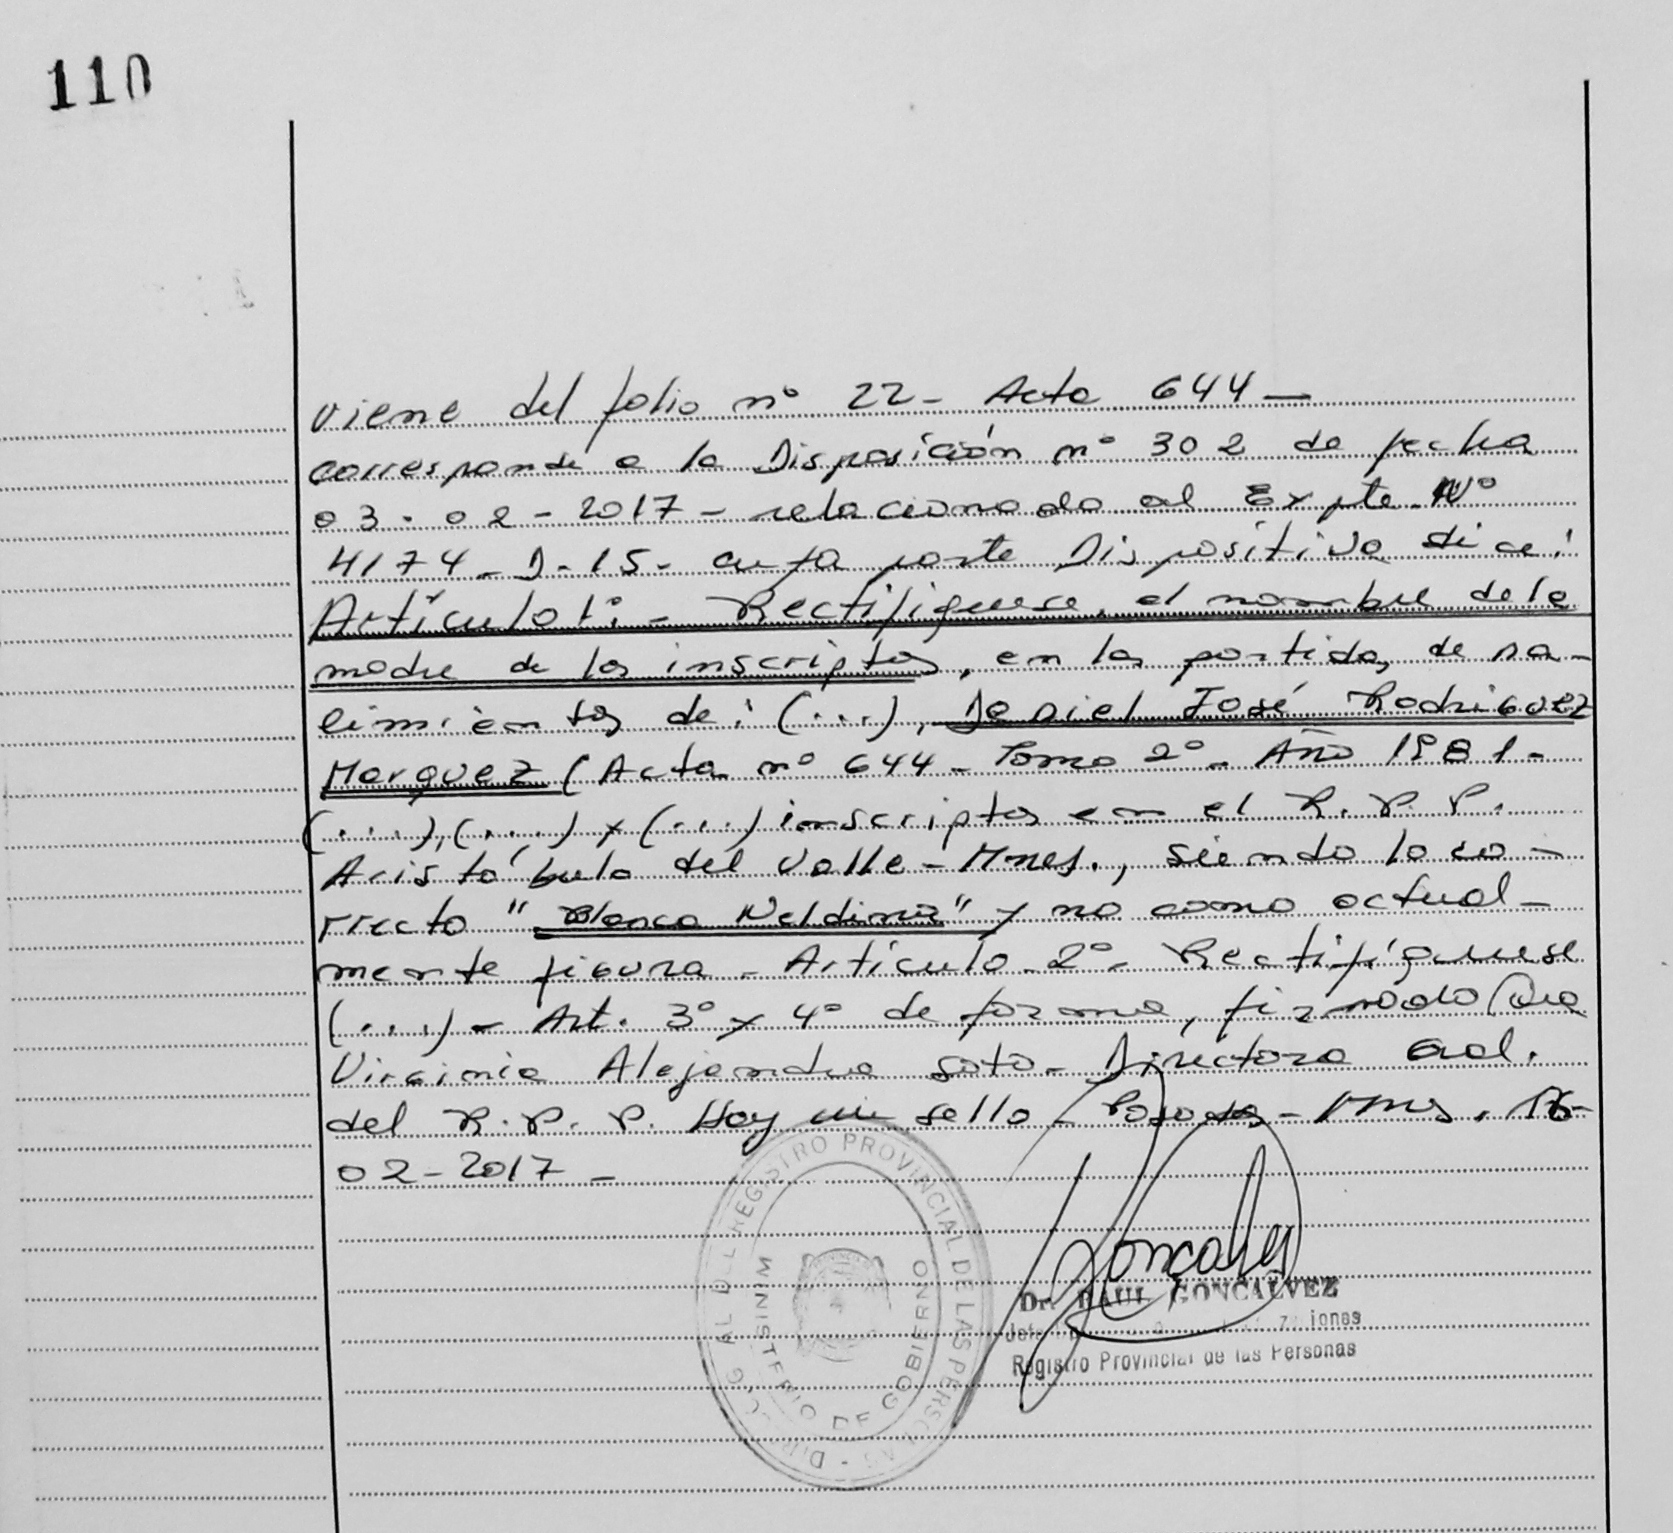 110
viene del folio nº 22- Acta 644-
corresponde a la Disposición nº 302 de fecha
03-02-2017- relacionado al Expte. Nº
4174-D-15- cuya parte Dispositiva dice:
Artículo 1º:- Rectifiquese, el nombre de la
madre de los inscriptos, en las partidas de na-
cimientos de: (...), Daniel José Rodriguez
Marquez (Acta nº 644- Tomo 2º- Año 1981-
(...), (...) y (...) inscriptos en el R. P. P.
Aristóbulo del Valle-Mnes., siendo lo co-
rrecto "Blanca Neldina" y no como actual-
mente figura- Artículo 2º- Rectifíquese
(...)- Art. 3º y 4º de forma, firmado Dra
Virginia Alejandra Soto- Directora Gral.
del R. P. P. Hay un sello- Posadas- Mnes. 16-
02-2017-
DIRECC. GRAL DEL REGISTRO PROVINCIAL DE LAS PERSONAS
MINISTERIO DE GOBIERNO
Goncalvez
Dr. RAUL GONCALVEZ
Jefe
Registro Provincial de las Personas